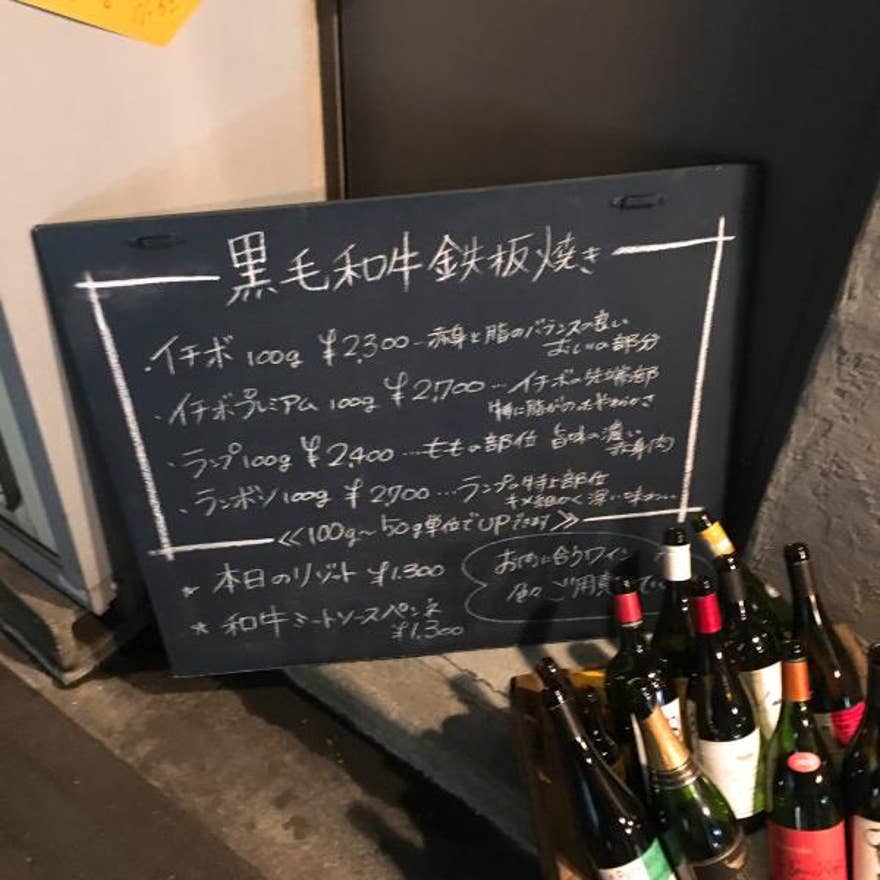 黒毛和牛鉄板焼き
・イチボ 100g ¥2,300…赤身と脂のバランスの良い
おしりの部分
・イチボプレミアム 100g ¥2,700…イチボの先端部
特に脂がのったやわらかさ
・ランプ100g ¥2,400…ももの部位 旨味の濃い
赤身肉
・ランボソ100g ¥2,700…ランプの特上部位
キメ細かく深い味わい
≪100g〜50g単位でUPできます≫
★本日のリゾット ¥1,300
★和牛ミートソースペンネ
¥1,300
お肉に合うワイン
ご用意